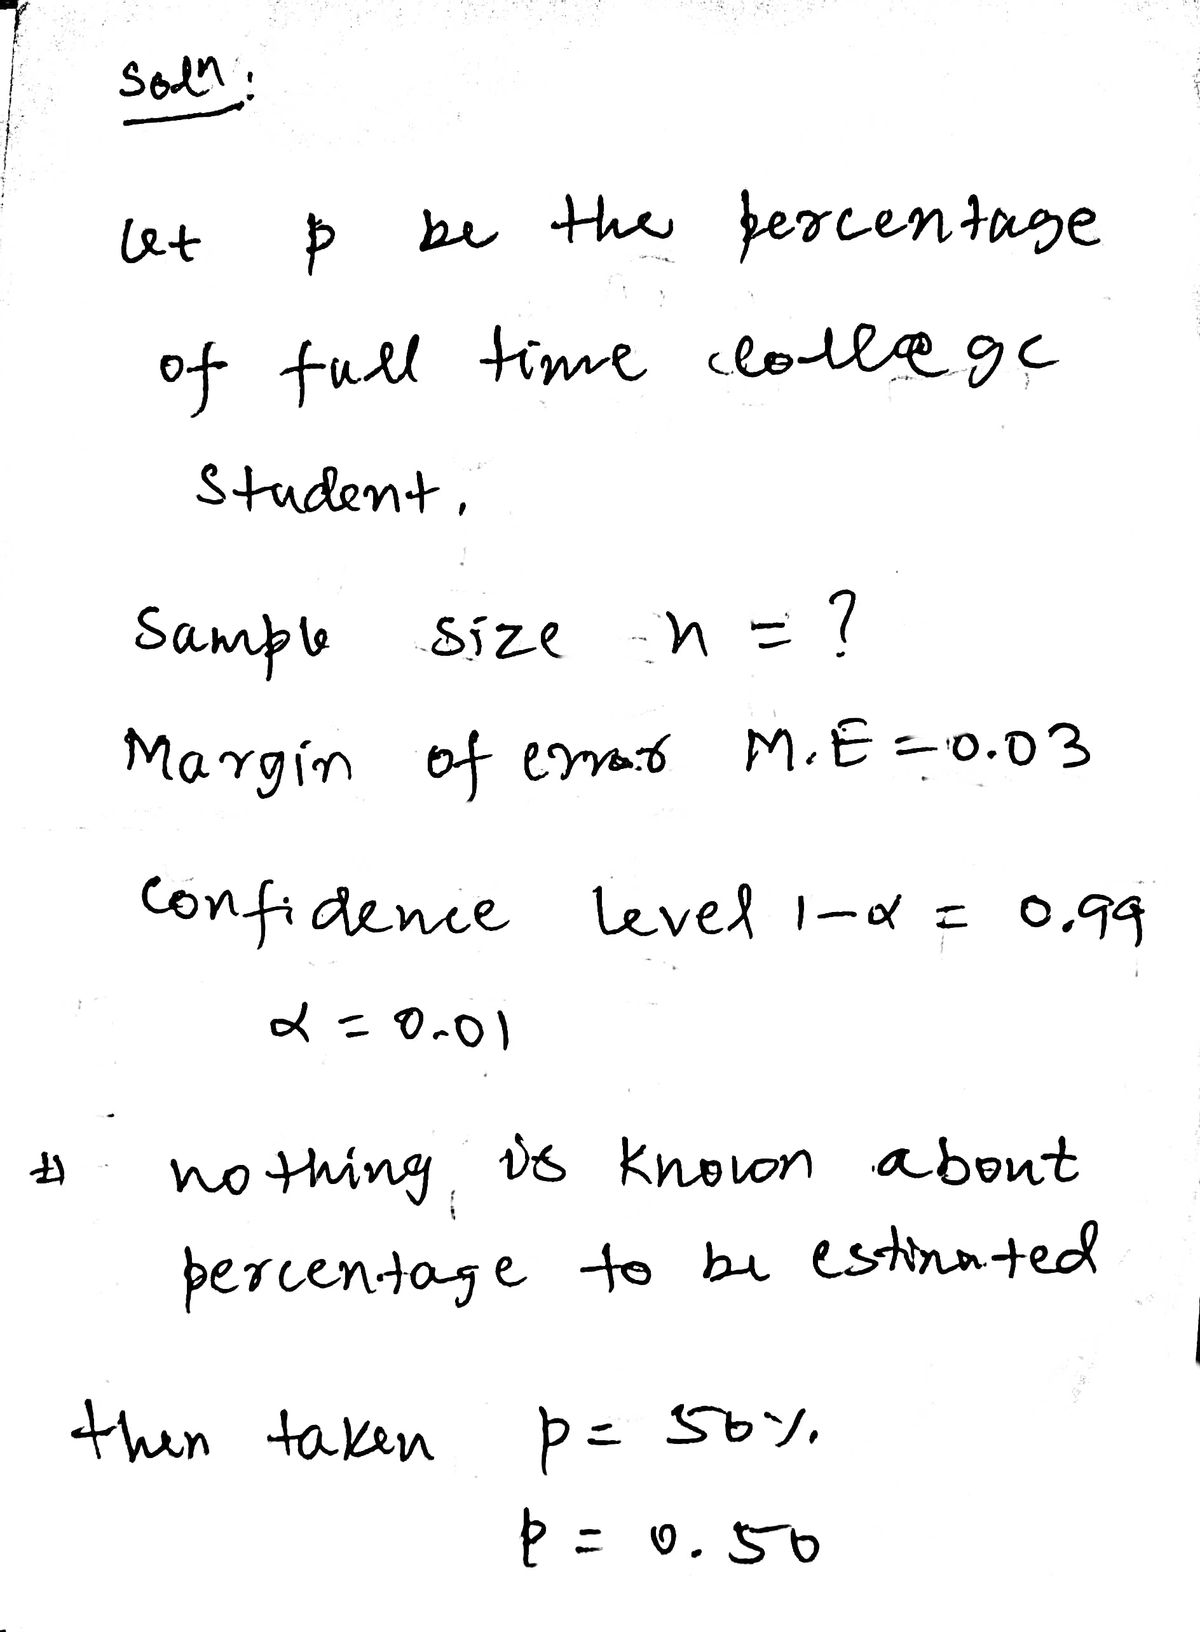 Soln:
let p be the percentage
of full time college
Student,
Sample size n = ?
Margin of error M.E = 0.03
Confidence level 1-α = 0.99
α = 0.01
nothing is known about
percentage to be estimated
then taken p = 50%.
p = 0.50